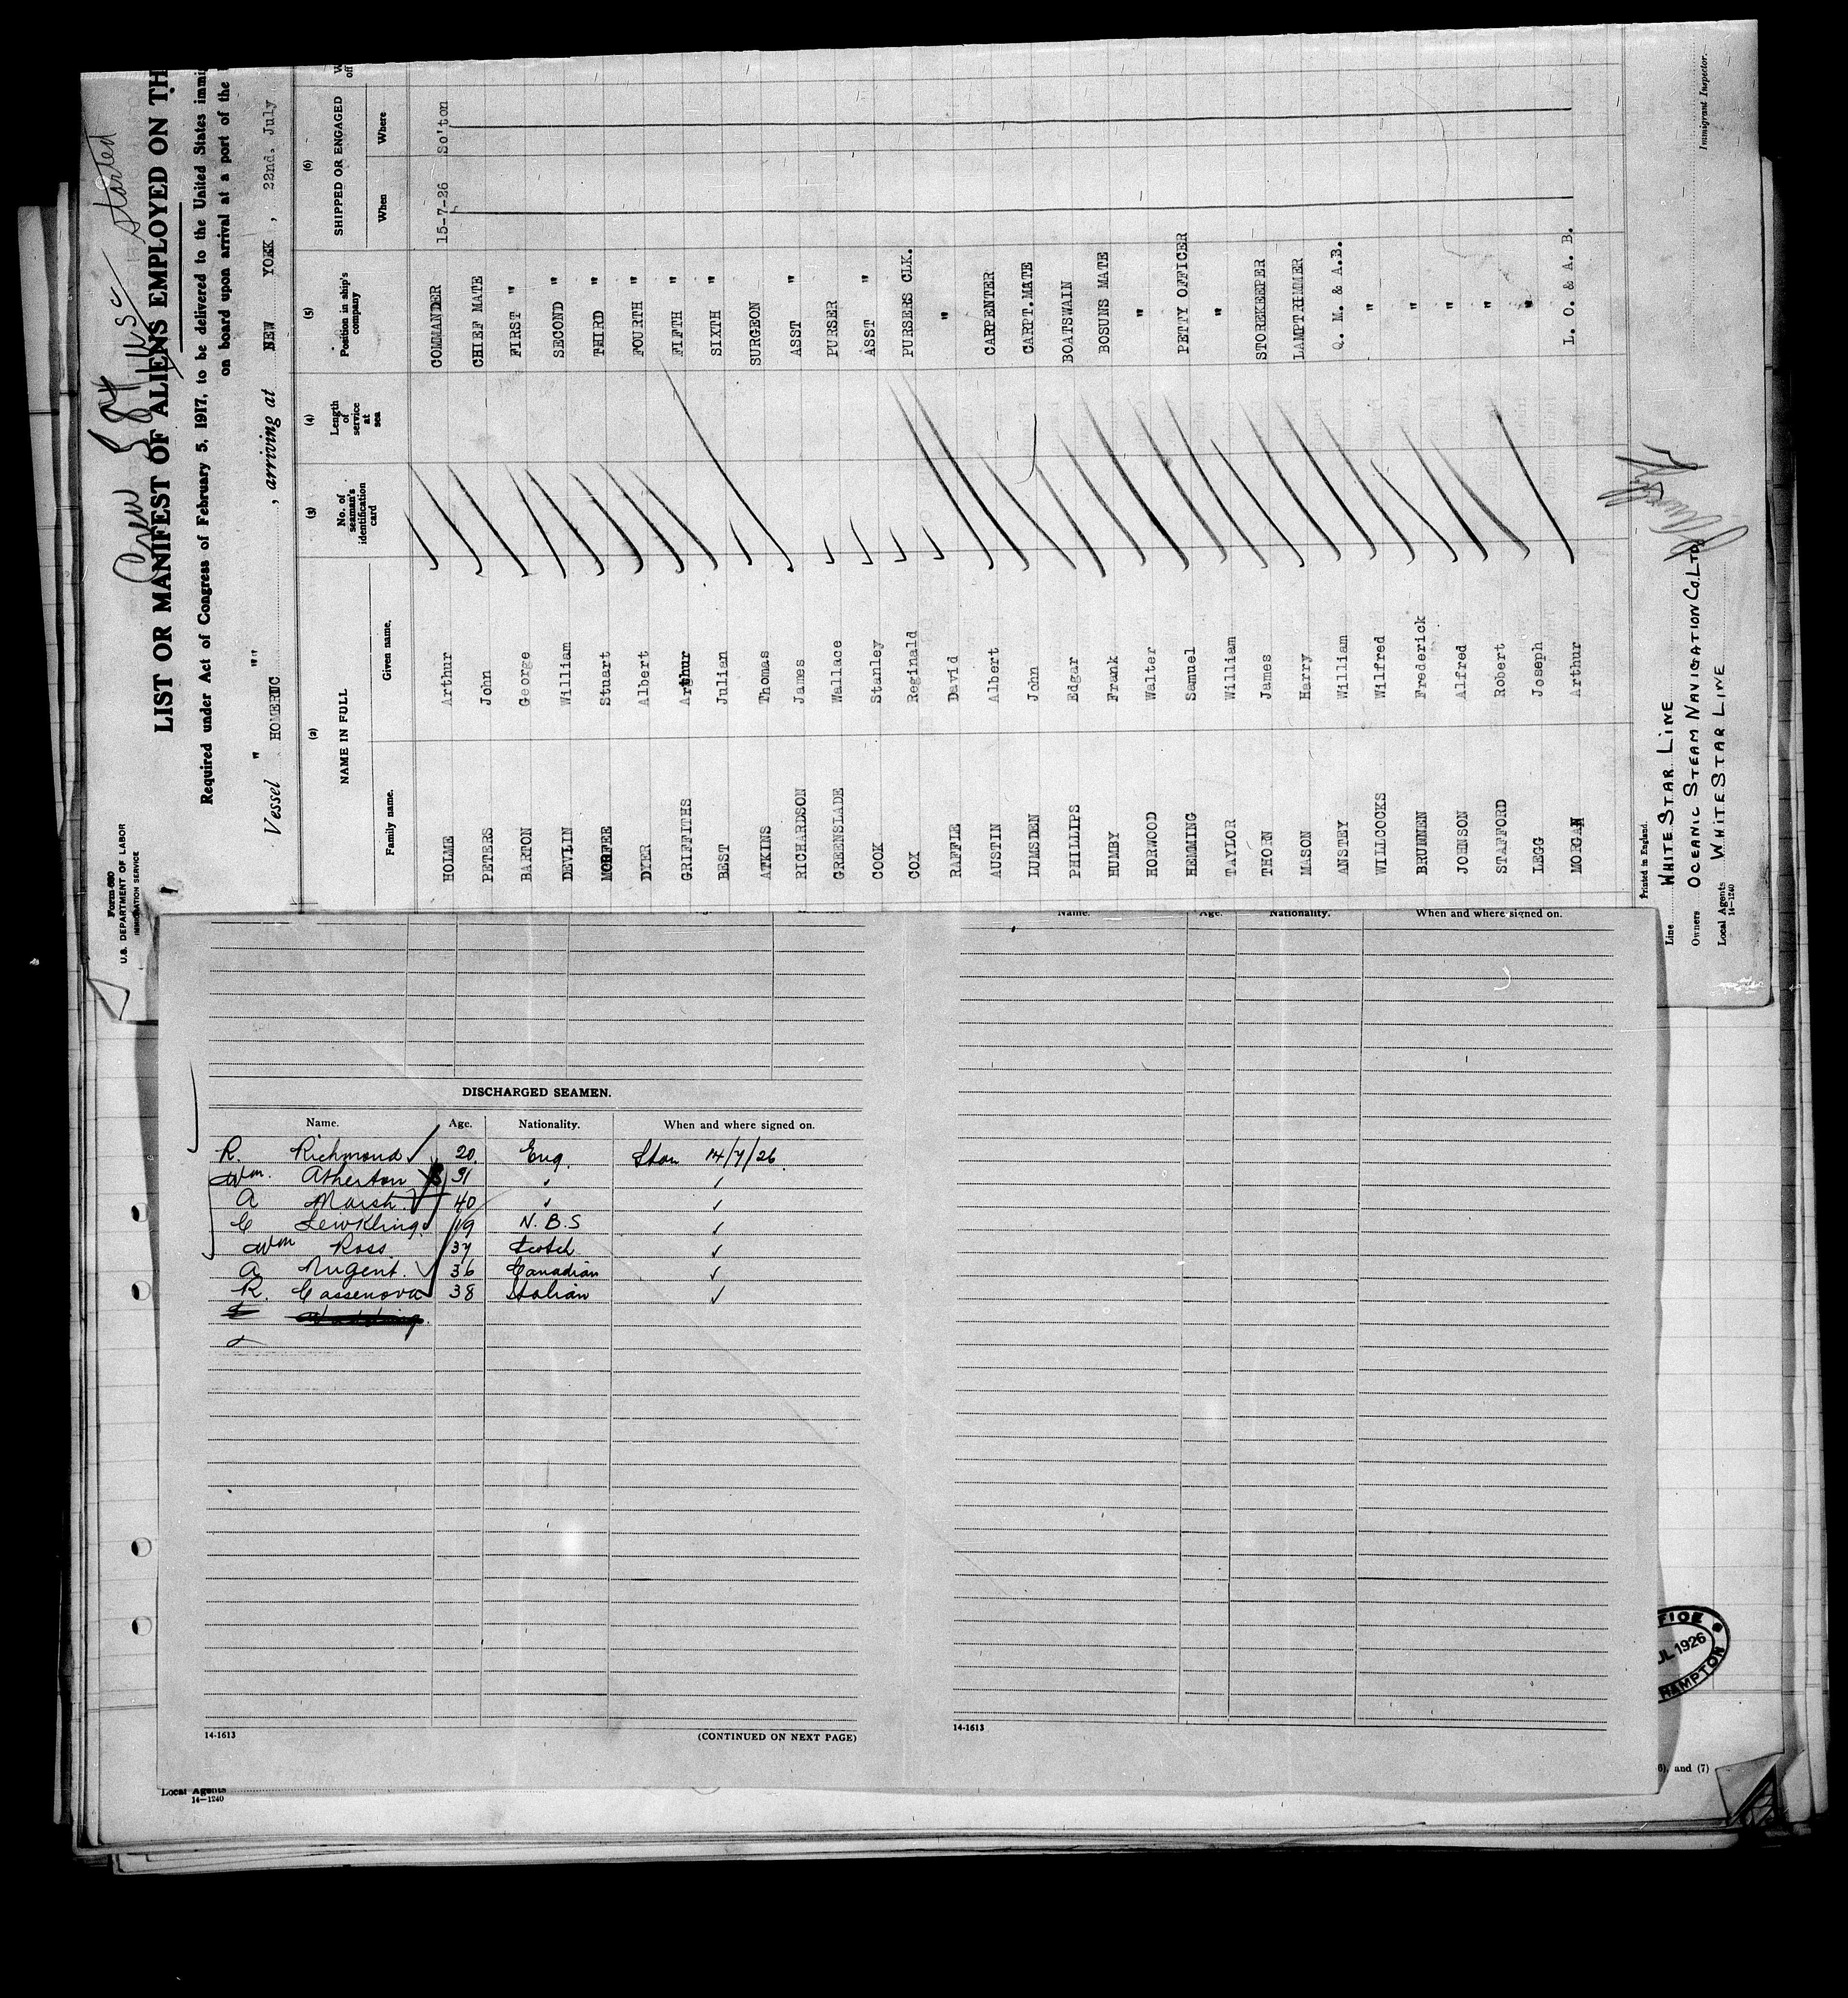 Crew 584
1 USC started
Form 680
U.S. DEPARTMENT OF LABOR
IMMIGRATION SERVICE
LIST OR MANIFEST OF ALIENS EMPLOYED ON TH
Required under Act of Congress of February 5, 1917, to be delivered to the United States immi
on board upon arrival at a port of the
Vessel " HOMERIC "" , arriving at NEW YORK , 22nd. July
(2) (3) (4) (5) (6)
NAME IN FULL No. of seaman's identification card Length of service at sea Position in ship's company SHIPPED OR ENGAGED
Family name. Given name. When Where
HOLME Arthur COMMANDER 15-7-26 So'ton
PETERS John CHIEF MATE
BARTON George FIRST "
DEVLIN William SECOND "
Stuart THIRD "
DYER Albert FOURTH "
GRIFFITHS Arthur FIFTH "
BEST Julian SIXTH "
ATKINS Thomas SURGEON
RICHARDSON James ASST "
GREENSLADE Wallace PURSER
COOK Stanley ASST "
COX Reginald PURSERS CLK.
RAFFLE David "
AUSTIN Albert CARPENTER
LUMSDEN John CARPT.MATE
PHILLIPS Edgar BOATSWAIN
HUMBY Frank BOSUNS MATE
HORWOOD Walter "
HEMMING Samuel PETTY OFFICER
TAYLOR William "
THORN James STOREKEEPER
MASON Harry LAMPTRIMMER
ANSTEY William Q. M. & A.B.
WILLCOCKS Wilfred "
BRUNNEN Frederick "
JOHNSON Alfred "
STAFFORD Robert "
LEGG Joseph "
MORGAN Arthur L. O. & A. B.
Printed in England.
Line WHITE STAR LINE
Owners OCEANIC STEAM NAVIGATION CO. LTD.
Local Agents WHITE STAR LINE
14—1240
Immigrant Inspector.
DISCHARGED SEAMEN.
Name. Age. Nationality. When and where signed on.
R. Richmond 20 Eng. Ston 14/7/26.
Wm. Atherton 31 " "
A Marsh 40 " "
C Lewkling 19 N.B.S "
Wm Ross 37 Scotch "
A Nugent. 36 Canadian "
R. Cassenova 38 Italian "
14-1613
(CONTINUED ON NEXT PAGE)
Name. Age. Nationality. When and where signed on.
14-1613
FICE
UL 1926
HAMPTON
6), and (7)
Local Agents
14—1240